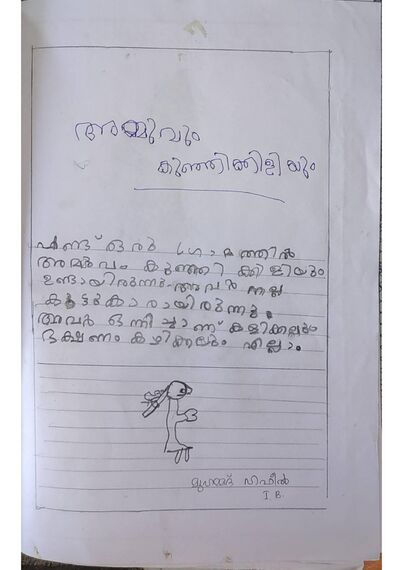 അമ്മുവും
കുഞ്ഞിക്കിളിയും
പണ്ട് ഒരു ഗ്രാമത്തിൽ
അമ്മുവും കുഞ്ഞി ക്കിളിയും
ഉണ്ടായിരുന്നു. അവർ നല്ല
കൂട്ടുകാരായിരുന്നു.
അവർ ഒന്നിച്ചാണ് കളിക്കലും
ഭക്ഷണം കഴിക്കലും എല്ലാം.
മുഹമ്മദ്
I B.